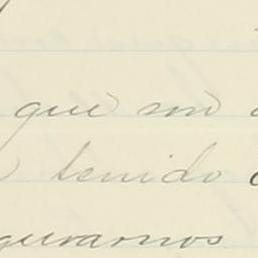 que son
tenido
guramos